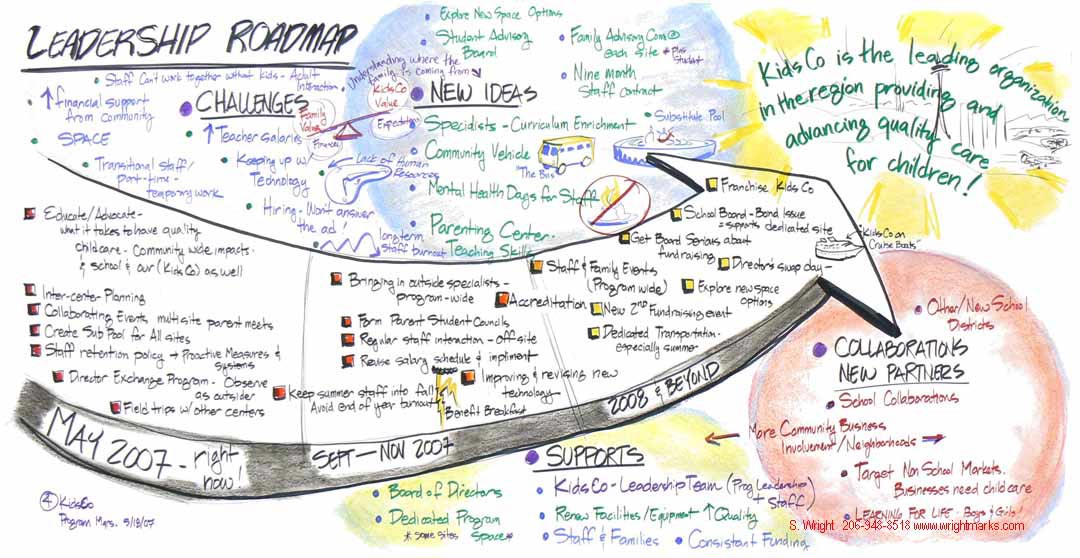 LEADERSHIP ROADMAP
Staff Can't work together without kids - Adult
Interaction
↑ financial support
from community
SPACE
CHALLENGES
↑ Teacher salaries
Transitional staff/
part-time -
temporary work
Keeping up w/
Technology
Hiring - Won't answer
the ad!
Lack of Human
Resources
long-term
staff burnout
Understanding where the
family is coming from
Family
Value
Finances
KidsCo
Value
Expectations
NEW IDEAS
Explore New Space Options
Student Advisory
Board
Family Advisory Com @
each site * plus
student
Nine month
Staff contract
Specialists - Curriculum Enrichment
Substitute Pool
Community Vehicle
The Bus
Mental Health Days for Staff
Parenting Center -
Teaching Skills
KidsCo is the leading organization
in the region providing and
advancing quality care
for children!
Educate/Advocate -
what it takes to have quality
childcare - Community wide, impacts
& school & our (KidsCo) as well
Inter-center Planning
Collaborating Events, multi site parent meets
Create Sub Pool for All sites
Staff retention policy → Proactive Measures &
systems
Director Exchange Program - Observe
as outsider
Field trips w/ other centers
Bringing in outside specialists -
program-wide
Form Parent Student Councils
Regular staff interaction - off site
Revise salary schedule & impliment
Keep summer staff into fall
Avoid end of year turnout
Benefit Breakfast
Improving & revising new
technology
Accreditation
Staff & Family Events
(Program wide)
New 2nd Fundraising event
Dedicated Transportation -
especially summer
Get Board Serious about
fundraising
School Board - Bond Issue
= supports dedicated site
Franchise Kids Co
Director's swap day -
Explore new space
options
KidsCo on
Cruise Boats"
MAY 2007 - right
now!
SEPT - NOV 2007
2008 & BEYOND
COLLABORATIONS
NEW PARTNERS
Other/New School
Districts
School Collaborations
More Community Business
Involvement/Neighborhoods
Target Non School Markets.
Businesses need child care
LEARNING FOR LIFE - Boys & Girls!
SUPPORTS
Board of Directors
Dedicated Program
* Some sites Space *
KidsCo - Leadership Team (Prog Leadership)
+ Staff
Renew Facilities/Equipment ↑ Quality
Staff & Families
Consistent Funding
④ KidsCo
Program Mgrs. 5/18/07
S. Wright 206-948-8518 www.wrightmarks.com